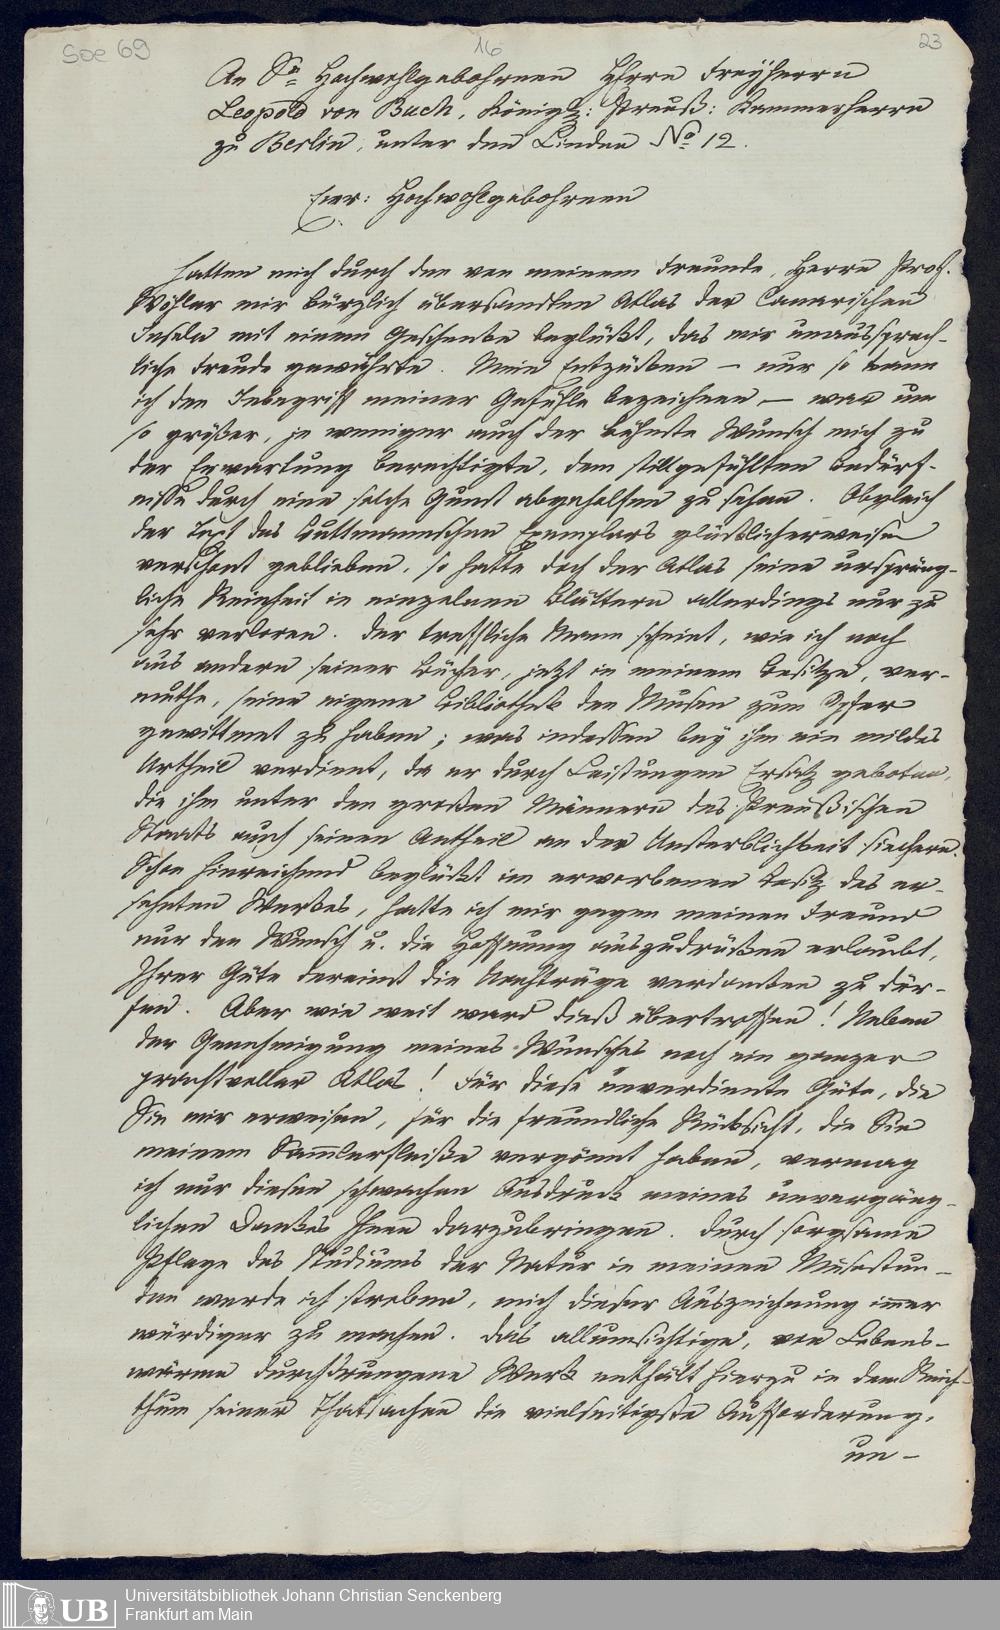 Soe 69
16
23
An Sr Hochwohlgebohrnen Herrn Freyherrn
Leopold von Buch, Königl: Preuß: Kammerherrn
zu Berlin, unter den Linden No 12.
Euer: Hochwohlgebohrnen
hatten mich durch den von meinem Freunde, Herrn Prof.
Wöhler mir kürzlich übersandten Atlas der Canarischen
Inseln mit einem Geschenke beglückt, das mir unaussprech-
liche Freude gewährte. Mein Entzücken — nur so kann
ich den Inbegriff meiner Gefühle bezeichnen — war um
so größer, je weniger auch der kühnste Wunsch mich zu
der Erwartung berechtigte, dem stillgefühlten Bedürf-
nisse durch eine solche Gunst abgeholfen zu sehen. Obgleich
der Text des Exemplars glücklicherweise
verschont geblieben, so hatte doch der Atlas seine ursprüng-
liche Reinheit in einzelnen Blättern allerdings nur zu
sehr verloren. Der treffliche Mann scheint, wie ich noch
aus andern seiner Bücher, jetzt in meinem Besitze, ver-
muthe, seine eigene Bibliothek den Musen zum Opfer
gewittmet zu haben; was indessen bey ihm ein mildes
Urtheil verdient, da er durch Leistungen Ersatz geboten,
die ihm unter den großen Männern des Preußischen
Staats auch seinen Antheil an der Unsterblichkeit sichern.
Schon hinreichend beglückt im erworbenen Besitz des er-
sehnten Werkes, hatte ich mir gegen meinen Freund
nur den Wunsch u. die Hoffnung auszudrücken erlaubt,
Ihrer Güte dereinst die Nachträge verdanken zu dür-
fen. Aber wie weit ward dieß übertroffen! Neben
der Genehmigung meines Wunsches noch ein ganzer
prachtvoller Atlas! Für diese unverdiente Güte, die
Sie mir erweisen, für die freundliche Rücksicht, die Sie
meinem Sammlerfleiße vergönnt haben, vermag
ich nur diesen schwachen Ausdruck meines unvergäng-
lichen Dankes Ihnen darzubringen. Durch sorgsame
Pflege des Studiums der Natur in meinen Musestun-
den werde ich streben, mich dieser Auszeichnung immer
würdiger zu machen. Das allumsichtige, von Lebens-
wärme durchdrungene Werk enthält hierzu in dem Reich-
thum seiner Thatsachen die vielseitigste Aufforderung,
un-
UB
Universitätsbibliothek Johann Christian Senckenberg
Frankfurt am Main